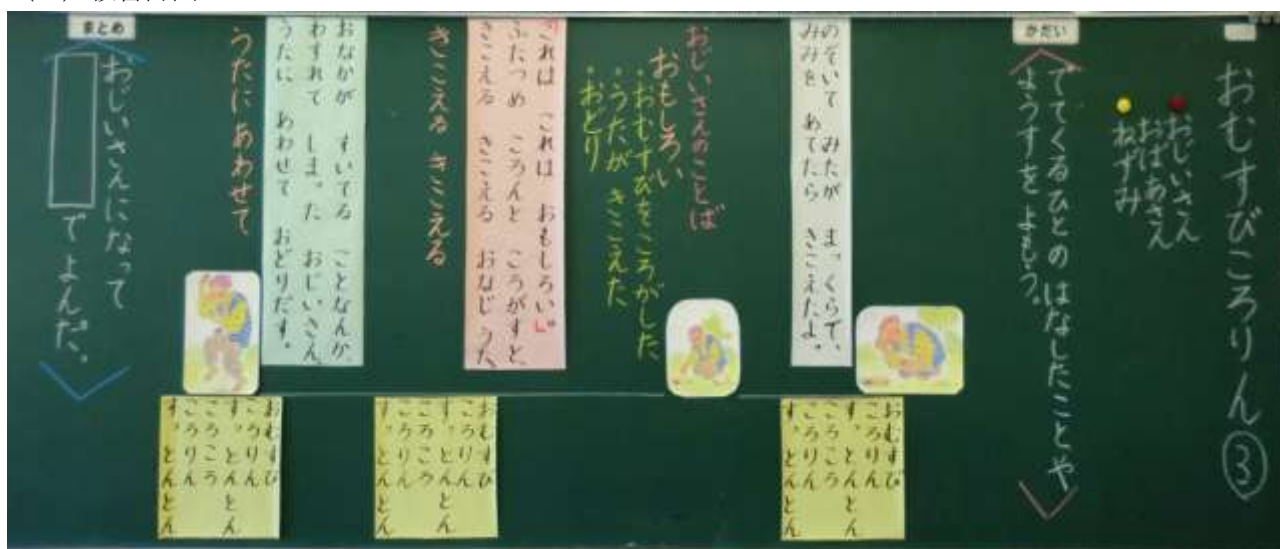 おむすびころりん③
おじいさん
おばあさん
ねずみ
かだい
でてくるひとの はなしたことや
ようすを よもう。
のぞいて みたが まっくらで、
みみを あてたら きこえたよ。
おむすび
ころりん
す。とんとん
ころころ
ころりん
す。とんとん
おじいさんのことば
おもしろい
・おむすびをころがした
・うたが きこえた
・おどり
「これは これは おもしろい。」
ふたつめ ころんと ころがすと、
きこえる きこえる おなじ うた。
きこえる きこえる
おむすび
ころりん
す。とんとん
ころころ
ころりん
す。とんとん
おなかが すいてる ことなんか、
わすれて しまった おじいさん。
うたに あわせて おどりだす。
うたに あわせて
おむすび
ころりん
す。とんとん
ころころ
ころりん
す。とんとん
まとめ
おじいさんになって
でよんだ。